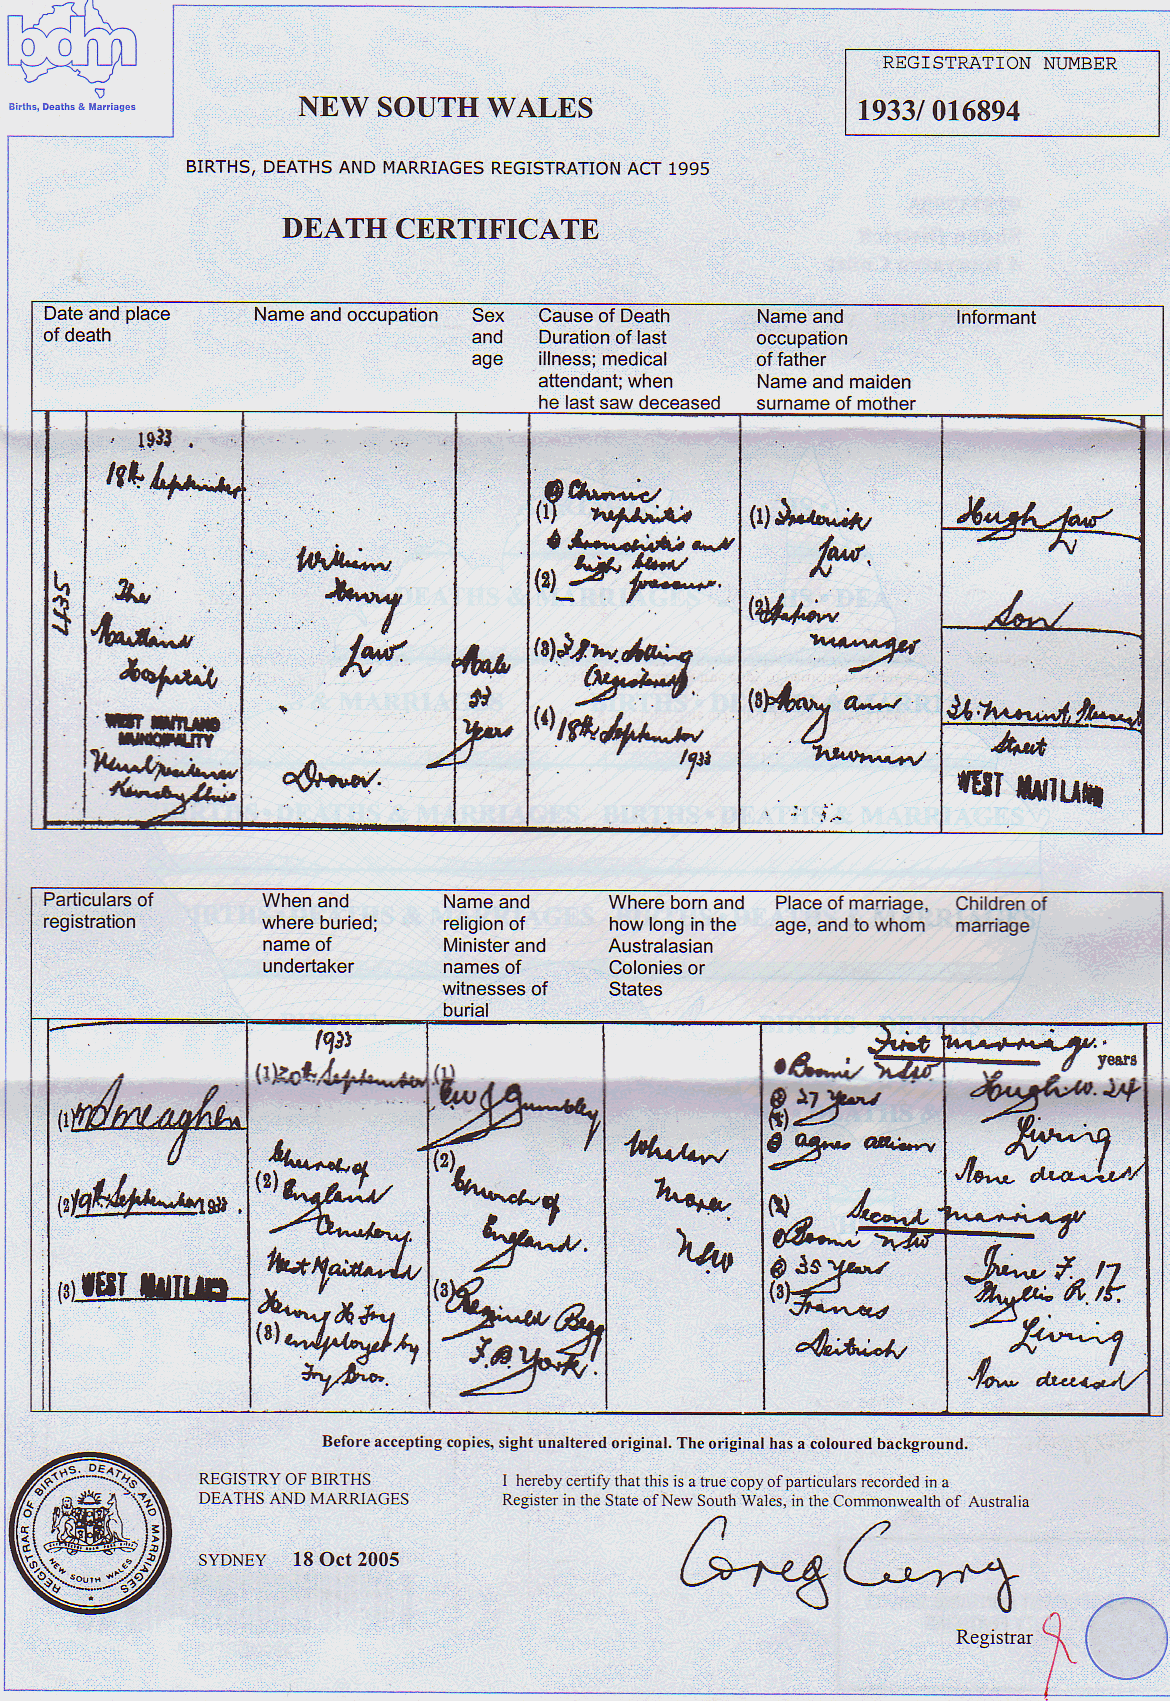 bdm
Births, Deaths & Marriages
REGISTRATION NUMBER
1933/ 016894
NEW SOUTH WALES
BIRTHS, DEATHS AND MARRIAGES REGISTRATION ACT 1995
DEATH CERTIFICATE
Date and place
of death
Name and occupation
Sex
and
age
Cause of Death
Duration of last
illness; medical
attendant; when
he last saw deceased
Name and
occupation
of father
Name and maiden
surname of mother
Informant
435
1933
18th September
The
Maitland
Hospital
WEST MAITLAND
MUNICIPALITY
Usual residence
William
Henry
Law.
Drover.
Male
53
Years
Chronic
(1) nephritis
and
high
(2) pressure.
(3)
(Registered)
(4) 18th September
1933
(1) Frederick
Law.
(2) Station
manager
(3) Mary Ann
Newman
Hugh Law
Son
36 Mount Pleasant
Street
WEST MAITLAND
Particulars of
registration
When and
where buried;
name of
undertaker
Name and
religion of
Minister and
names of
witnesses of
burial
Where born and
how long in the
Australasian
Colonies or
States
Place of marriage,
age, and to whom
Children of
marriage
(1)
(2) 19th September 1933.
(3) WEST MAITLAND
1933
(1) 20th September
Church of
(2) England
Cemetery
West Maitland
Henry H Fry
(3) employed by
Fry Bros.
(1)
E W J Gumbley
(2)
Church of
England.
(3) Reginald Begg
F. B. York.
Whalan
NSW
First marriage.
Boomi NSW
27 Years
Agnes Allison
(2) Second marriage
Boomi NSW
35 Years
(3) Frances
Deitrich
years
Hugh W. 24
Living
None deceased
Irene F. 17
Phyllis R. 15.
Living
None deceased
Before accepting copies, sight unaltered original. The original has a coloured background.
REGISTRAR OF BIRTHS, DEATHS AND MARRIAGES
NEW SOUTH WALES
REGISTRY OF BIRTHS
DEATHS AND MARRIAGES
SYDNEY 18 Oct 2005
I hereby certify that this is a true copy of particulars recorded in a
Register in the State of New South Wales, in the Commonwealth of Australia
Greg Curry
Registrar